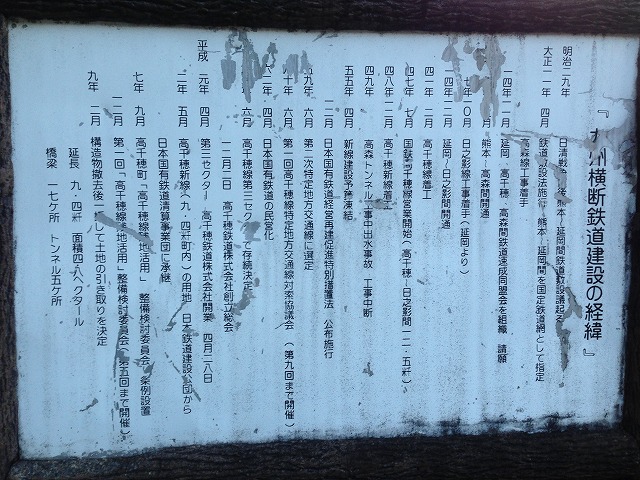 『九州横断鉄道建設の経緯』
明治二九年 日清戦 後 熊本－延岡間鉄道敷設議起
大正一一年 四月 鉄道敷設法施行 熊本－延岡間を国定鉄道網として指定
高森線工事着手
一四年一一月 延岡・高千穂・高森間鉄道速成同盟会を組織 請願
月 熊本－高森間開通
七年一〇月 日之影線工事着手（延岡より）
一四年一二月 延岡～日之影間開通
四一年 二月 高千穂線着工
四七年 七月 国鉄高千穂線営業開始（高千穂～日之影間一二・五粁）
四八年一二月 高千穂新線着工
四九年 高森トンネル工事中出水事故 工事中断
五五年 四月 新線建設予算凍結
一二月 日本国有鉄道経営再建促進特別措置法 公布施行
五九年 六月 第二次特定地方交通線に選定
六十年 六月 第一回高千穂線特定地方交通線対策協議会（第九回まで開催）
六二年 四月 日本国有鉄道の民営化
六月 高千穂線第三セクターで存続決定
一二月二日 高千穂鉄道株式会社創立総会
平成 元年 四月 第三セクター 高千穂鉄道株式会社開業 四月二八日
二年 五月 高千穂新線（九・四粁町内）の用地 日本鉄道建設公団から
日本国有鉄道清算事業団に承継
七年 九月 高千穂町「高千穂線跡地活用」整備検討委員会 条例設置
一二月 第一回「高千穂線跡地活用」整備検討委員会（第五回まで開催）
九年 二月 構造物撤去後 して土地の引き取りを決定
延長 九・四粁 面積四八ヘクタール
橋梁 一七ケ所 トンネル五ケ所